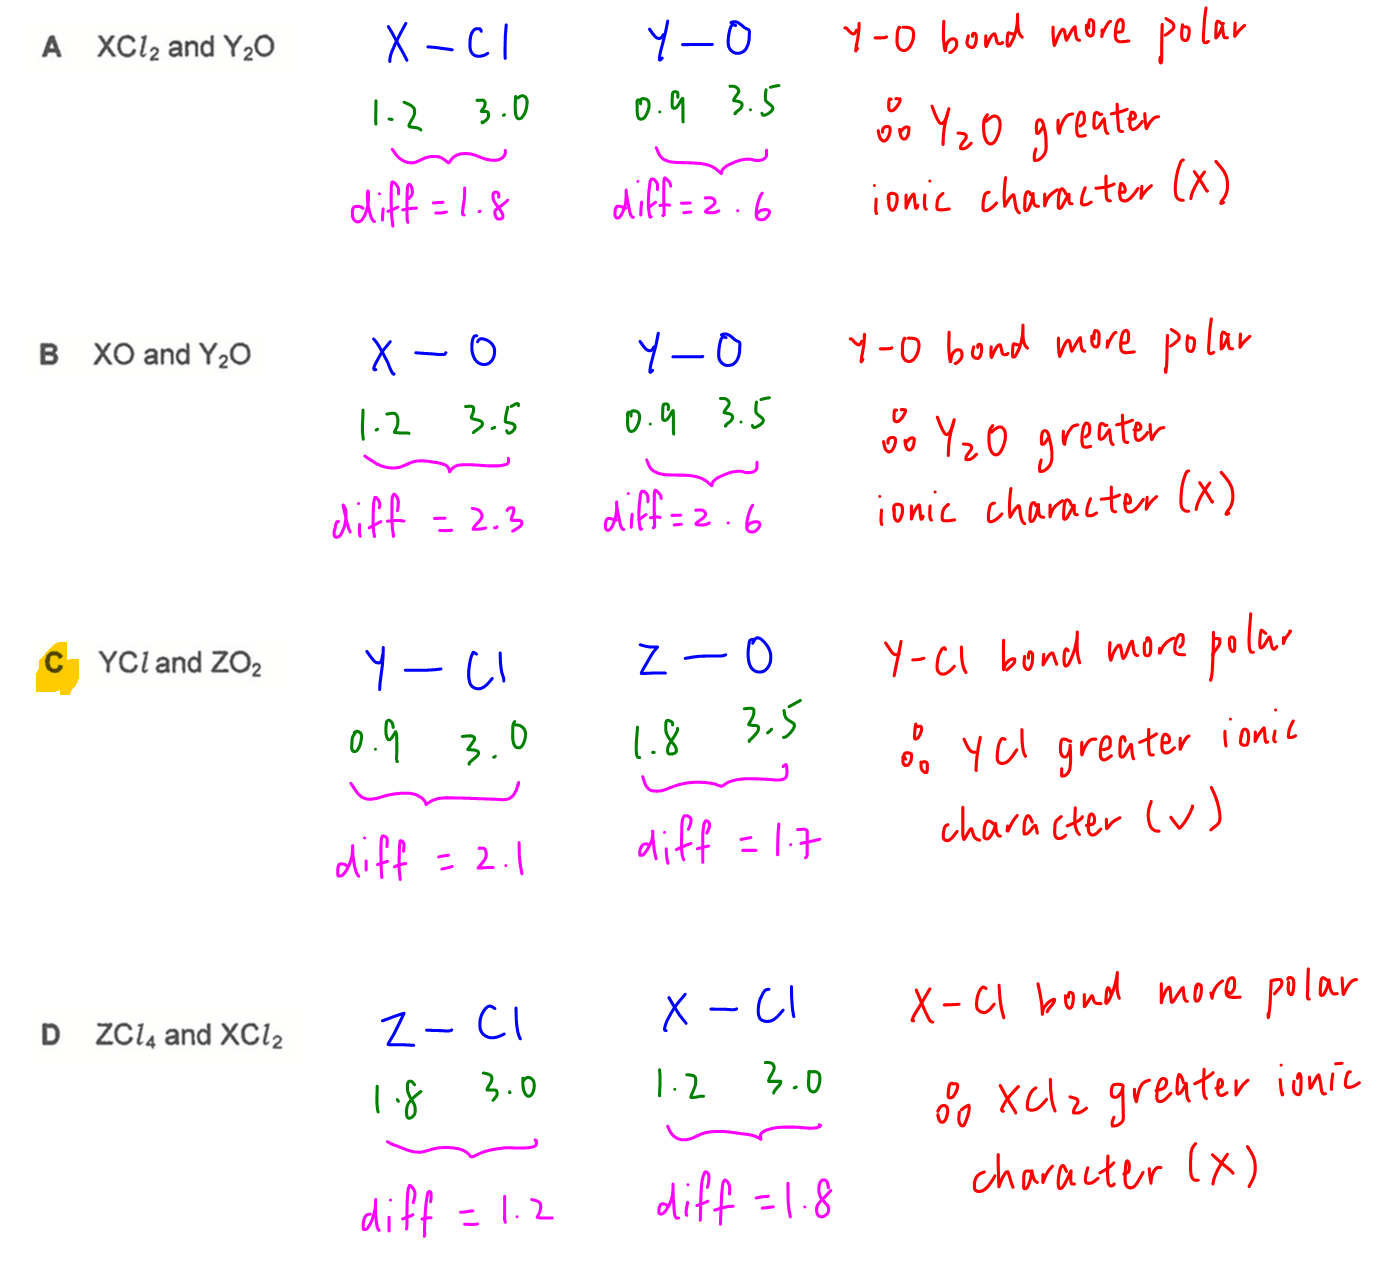 A XCl₂ and Y₂O X – Cl Y – O Y-O bond more polar
1.2 3.0 0.9 3.5 ∴ Y₂O greater
diff = 1.8 diff = 2.6 ionic character (x)
B XO and Y₂O X – O Y – O Y-O bond more polar
1.2 3.5 0.9 3.5 ∴ Y₂O greater
diff = 2.3 diff = 2.6 ionic character (x)
C YCl and ZO₂ Y – Cl Z – O Y-Cl bond more polar
0.9 3.0 1.8 3.5 ∴ YCl greater ionic
diff = 2.1 diff = 1.7 character (✓)
D ZCl₄ and XCl₂ Z – Cl X – Cl X-Cl bond more polar
1.8 3.0 1.2 3.0 ∴ XCl₂ greater ionic
diff = 1.2 diff = 1.8 character (x)